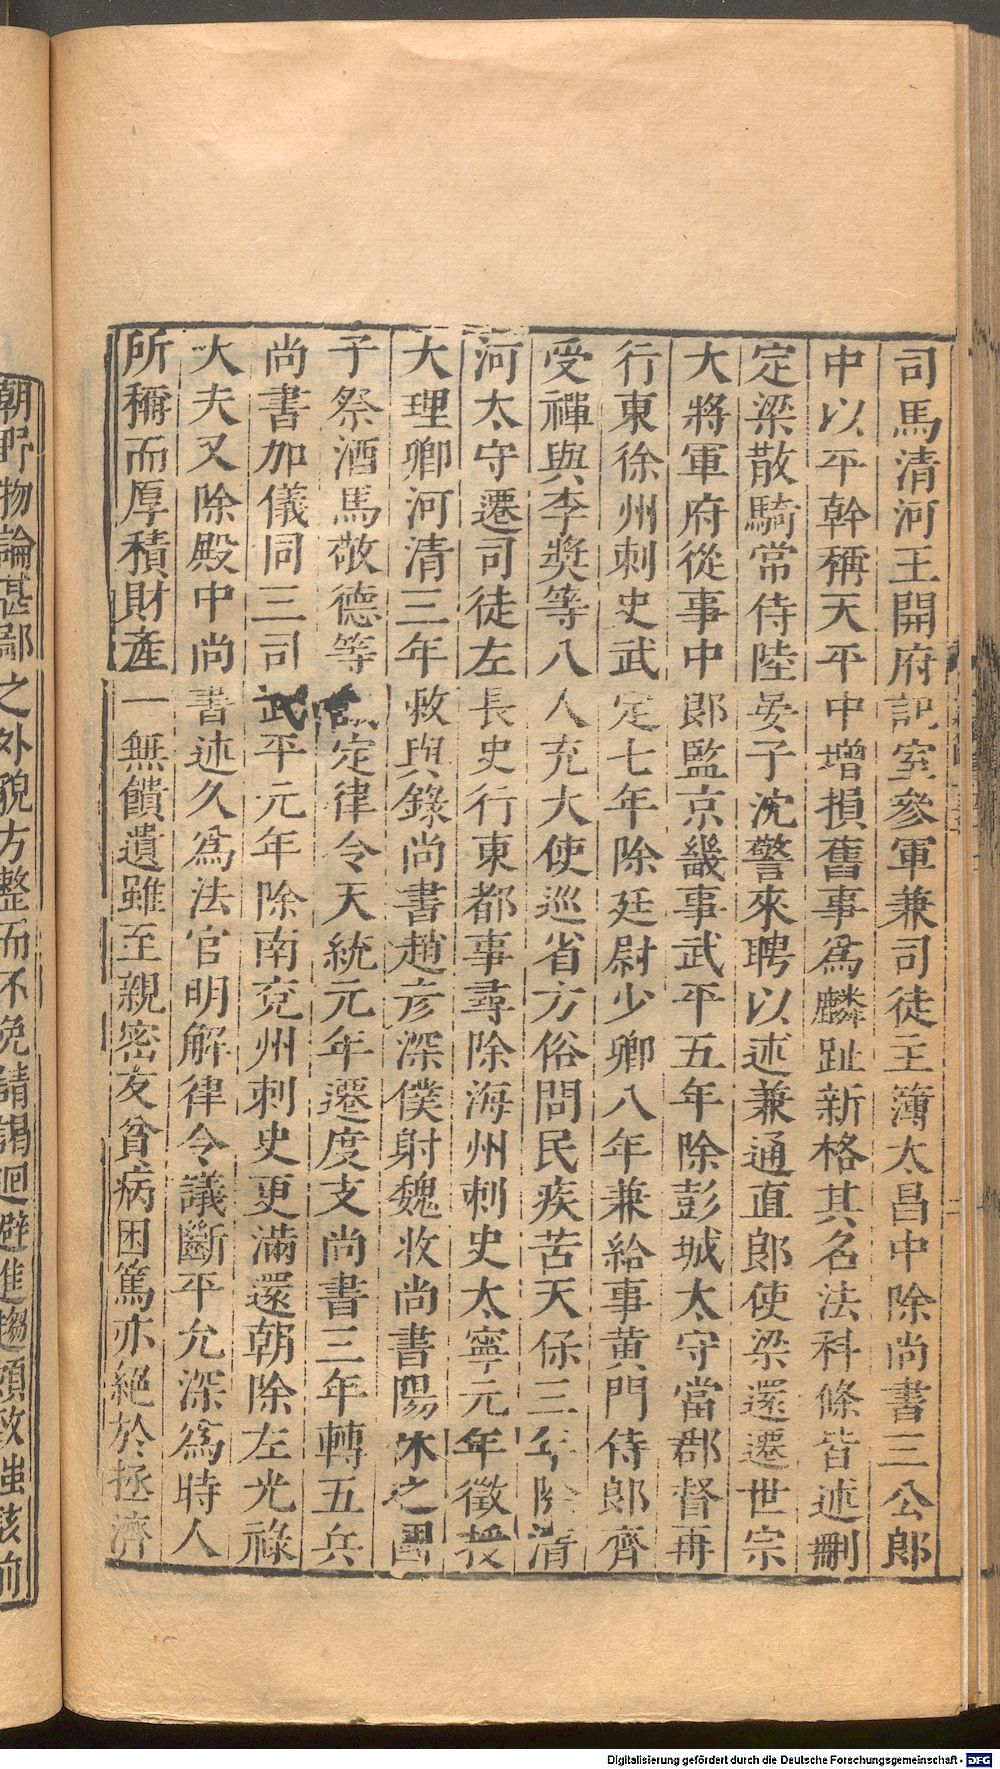 司馬清河王開府記室參軍兼司徒主簿太昌中除尚書三公郎
中以平幹稱天平中增損舊事爲麟趾新格其名法科條皆述刪
定梁散騎常侍陸晏子沈警來聘以述兼通直郎使梁還遷世宗
大將軍府從事中郎監京畿事武平五年除彭城太守當郡督再
行東徐州刺史武定七年除廷尉少卿八年兼給事黃門侍郎齊
受禪與李奬等八人充大使巡省方俗問民疾苦天保三年除清
河太守遷司徒左長史行東都事尋除海州刺史太寧元年徵授
大理卿河清三年敕與錄尚書趙彥深僕射魏收尚書陽休之國
子祭酒馬敬德等議定律令天統元年遷度支尚書三年轉五兵
尚書加儀同三司武平元年除南兗州刺史更滿還朝除左光祿
大夫又除殿中尚書述久爲法官明解律令議斷平允深爲時人
所稱而厚積財產一無饋遺雖至親密友貧病困篤亦絕於拯濟
朝野物論甚鄙之外貌方整而不免請謁迴避進趨頗致嗤駭前
Digitalisierung gefördert durch die Deutsche Forschungsgemeinschaft - DFG